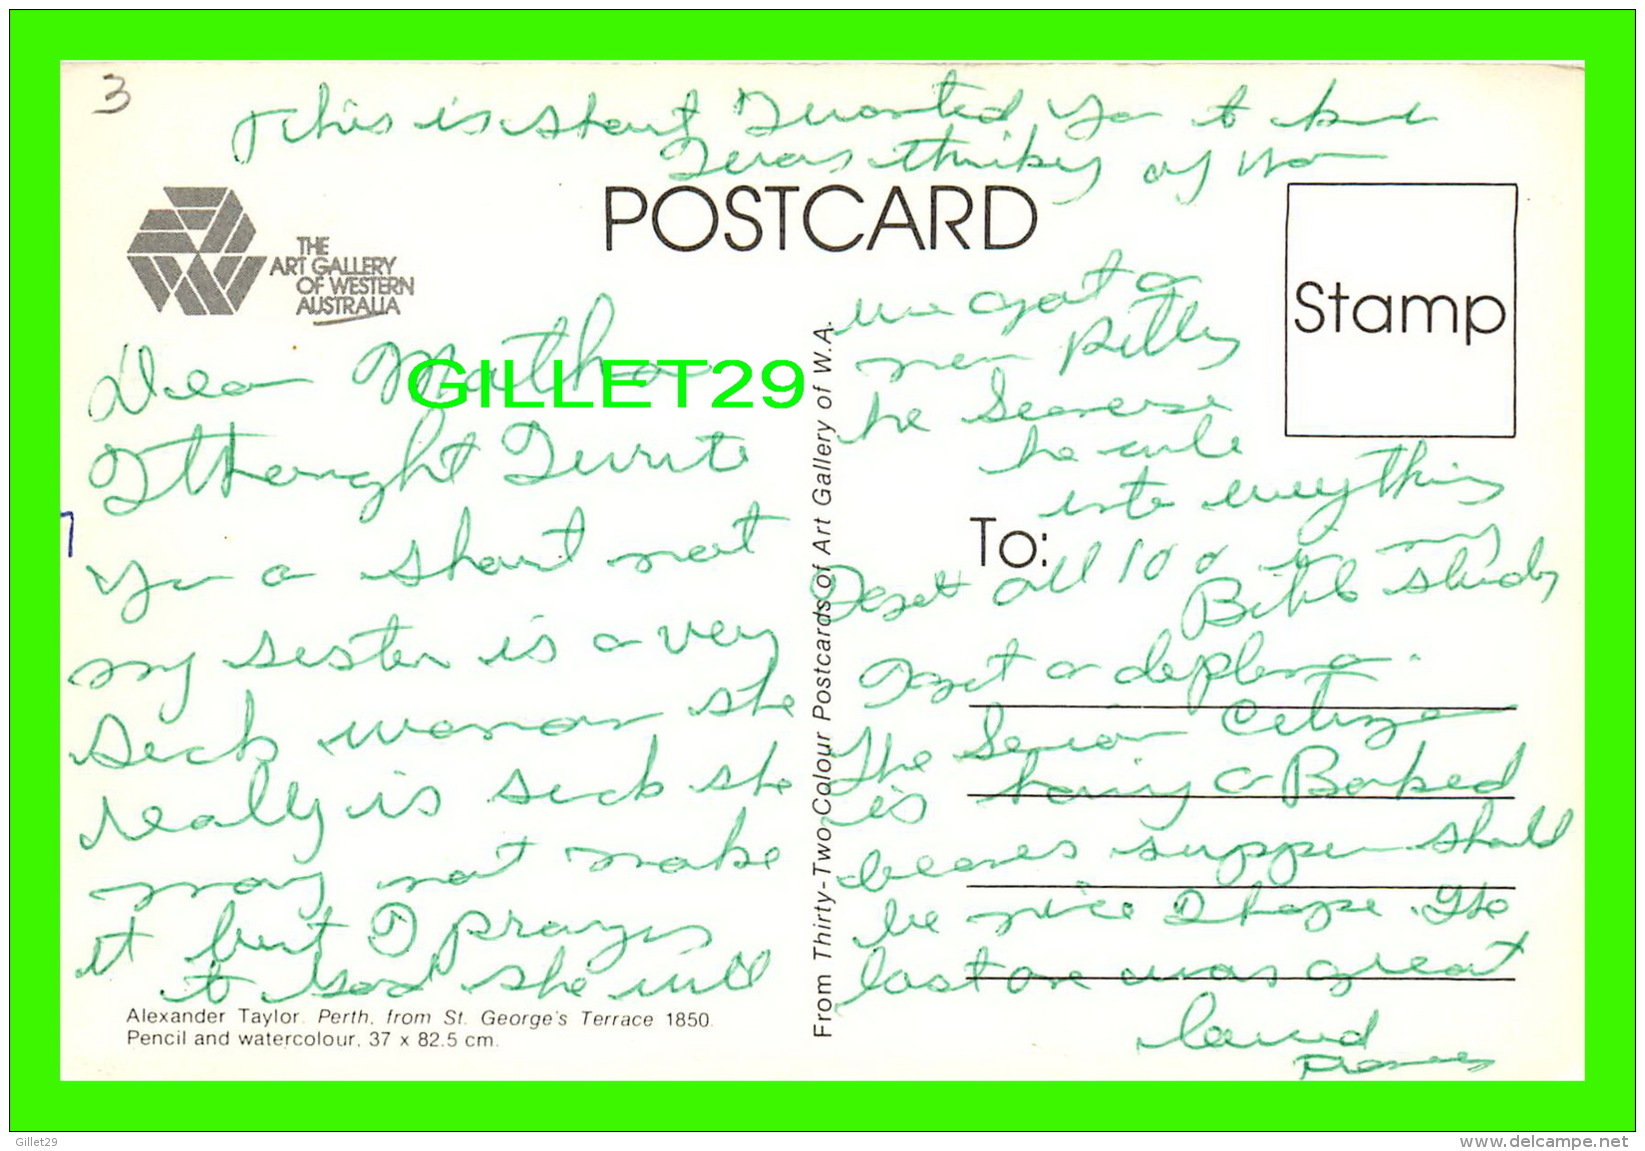 3
This is short I wanted you to know
I was thinking of you
POSTCARD
THE
ART GALLERY
OF WESTERN
AUSTRALIA
Stamp
GILLET29
Dear Martha
I thought I write
you a short not
my sister is a very
sick woman she
really is sick she
may not make
it but I prayes
to God she will
Alexander Taylor. Perth, from St. George's Terrace 1850.
Pencil and watercolour, 37 x 82.5 cm.
From Thirty-Two Colour Postcards of Art Gallery of W.A.
we got a
new
he
he
into everything
To:
I get all 100 in my
Bible study
I get a deploma.
The Senior Citizen
is having a Baked
beanes supper should
be nice I hope. The
last one was great
Frances
Gillet29
www.delcampe.net